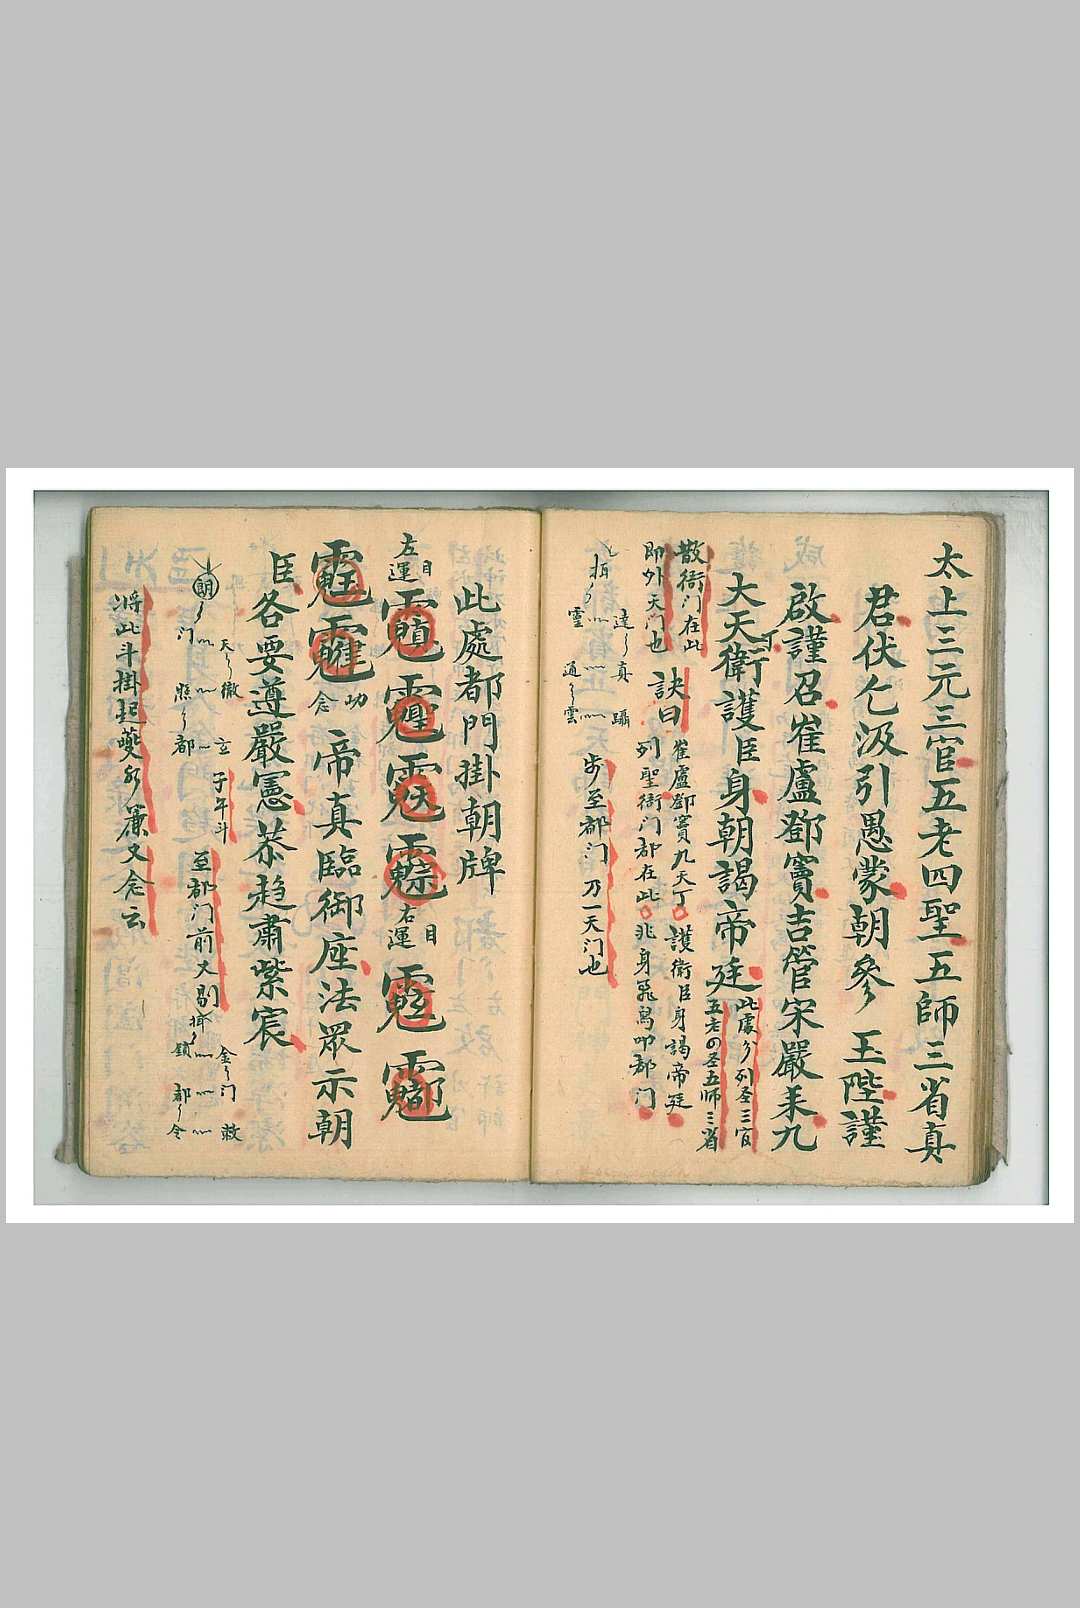 太上三元三官五老四聖五師三省真
君伏乞汲引愚蒙朝參　玉陛謹
啟謹召崔盧鄧竇吉管宋嚴耒九
大天丁衛護臣身朝謁帝廷
此處分列圣三官
五老四圣五師三省
散衙门在此
即外天门也
訣曰
崔盧鄧竇九天丁護衛臣身謁帝廷
列聖衙门都在此
兆身飛舄叩都门
達真
躡
靈
通雲
步至都门乃一天门也
此處都門掛朝牌
左運
目
右運
目
帝真臨御座法眾示朝
臣各要遵嚴憲恭趨肅紫宸
朗
门
天徹
照都
立
子午斗
至都门前大剔
金门
敕
鎖
都令
將此斗掛起
簾又念云